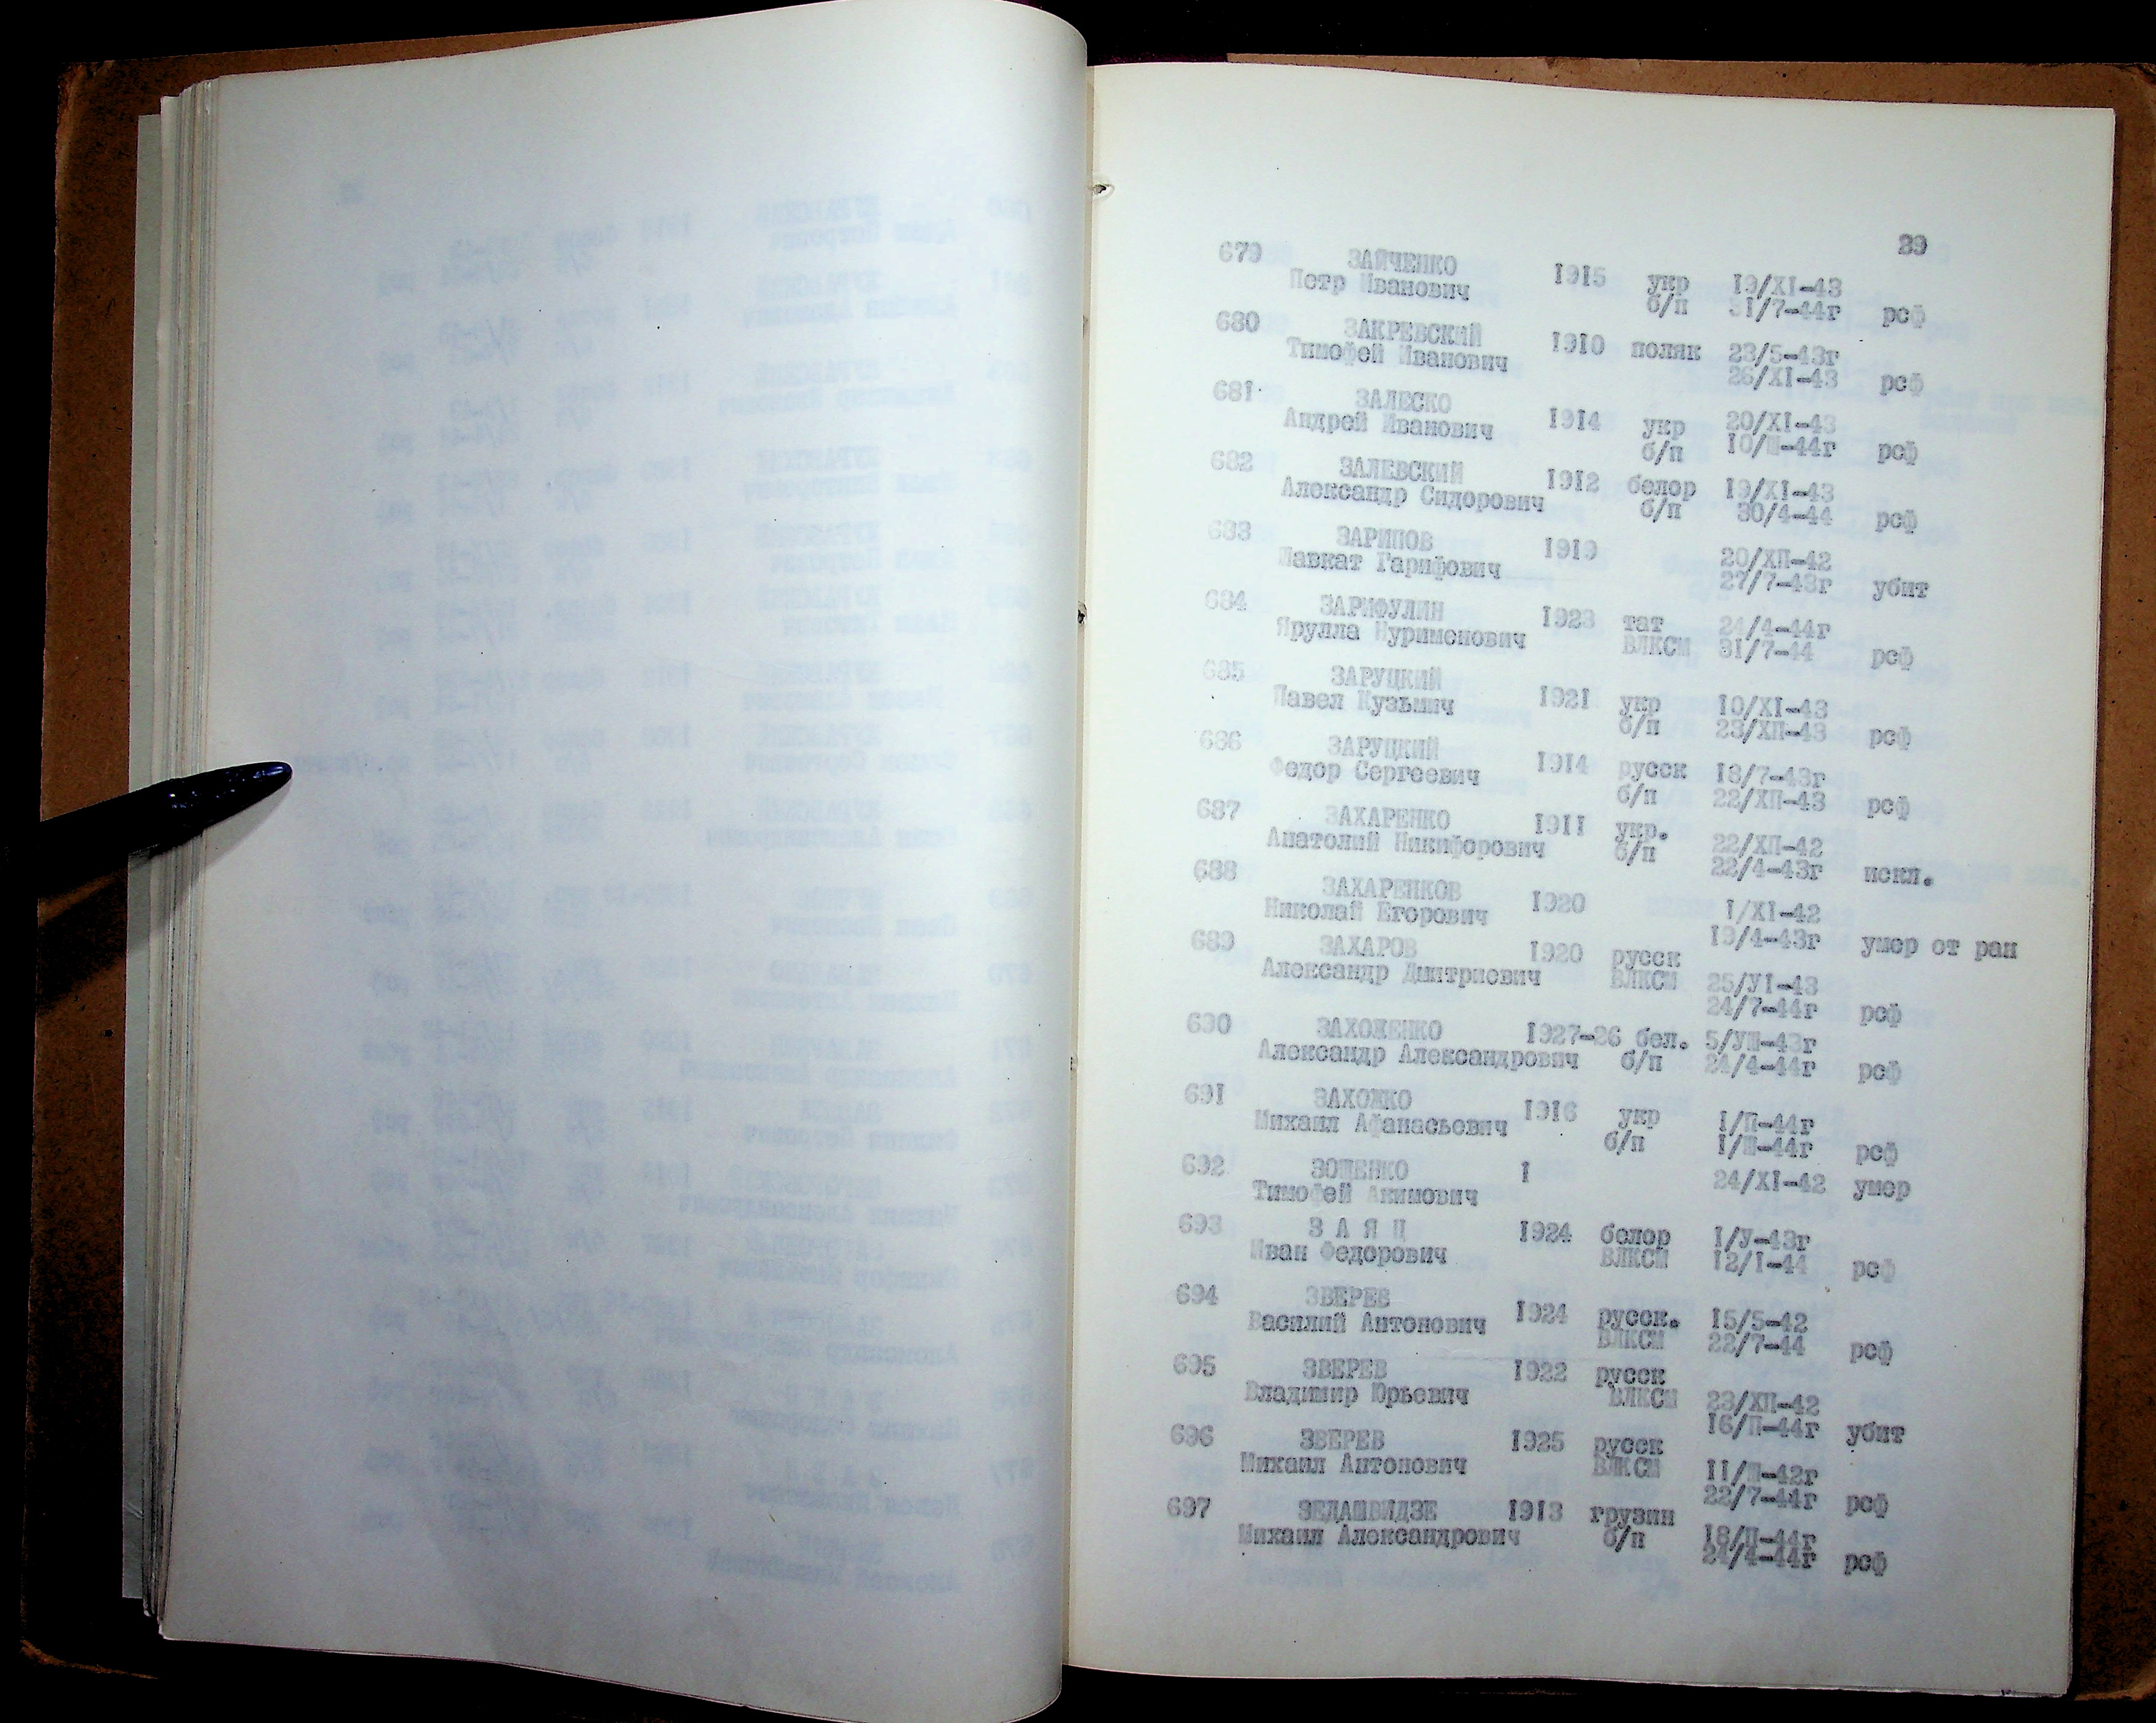 39
679 ЗАЙЧЕНКО 1915 укр 19/XI-43
Петр Иванович б/п 31/7-44г рсф
680 ЗАКРЕВСКИЙ 1910 поляк 23/5-43г
Тимофей Иванович 26/XI-43 рсф
681 ЗАЛЕСКО 1914 укр 20/XI-43
Андрей Иванович б/п 10/Ш-44г рсф
682 ЗАЛЕВСКИЙ 1912 белор 19/XI-43
Александр Сидорович б/п 30/4-44 рсф
683 ЗАРИПОВ 1919 20/ХП-42
Шавкат Гарифович 27/7-43г убит
684 ЗАРИФУЛИН 1923 тат 24/4-44г
Ярулла Нурименович ВЛКСМ, 31/7-44 рсф
685 ЗАРУЦКИЙ 1921 укр 10/XI-43
Павел Кузьмич б/п 23/ХП-43 рсф
686 ЗАРУЦКИЙ 1914 русск 18/7-43г
Федор Сергеевич б/п 22/ХП-43 рсф
687 ЗАХАРЕНКО 1911 укр. 22/ХП-42
Анатолий Никифорович б/п 22/4-43г искл.
688 ЗАХАРЕНКОВ 1920 1/XI-42
Николай Егорович 19/4-43г умер от ран
689 ЗАХАРОВ 1920 русск 25/УI-43
Александр Дмитриевич ВЛКСМ 24/7-44г рсф
690 ЗАХОЖЕНКО 1927-26 бел. 5/УШ-43г
Александр Александрович б/п 24/4-44г рсф
691 ЗАХОЖКО 1916 укр 1/П-44г
Михаил Афанасьевич б/п 1/Ш-44г рсф
692 ЗОШЕНКО I 24/XI-42 умер
Тимофей Акимович
693 З А Я Ц 1924 белор 1/У-43г
Иван Федорович ВЛКСМ 12/I-44 рсф
694 ЗВЕРЕВ 1924 русск. 15/5-42
Василий Антонович ВЛКСМ 22/7-44 рсф
695 ЗВЕРЕВ 1922 русск 23/ХП-42
Владимир Юрьевич ВЛКСМ 16/П-44г убит
696 ЗВЕРЕВ 1925 русск 11/Ш-42г
Михаил Антонович ВЛКСМ 22/7-44г рсф
697 ЗЕДАШВИДЗЕ 1913 грузин 18/П-44г
Михаил Александрович б/п 24/4-44г рсф